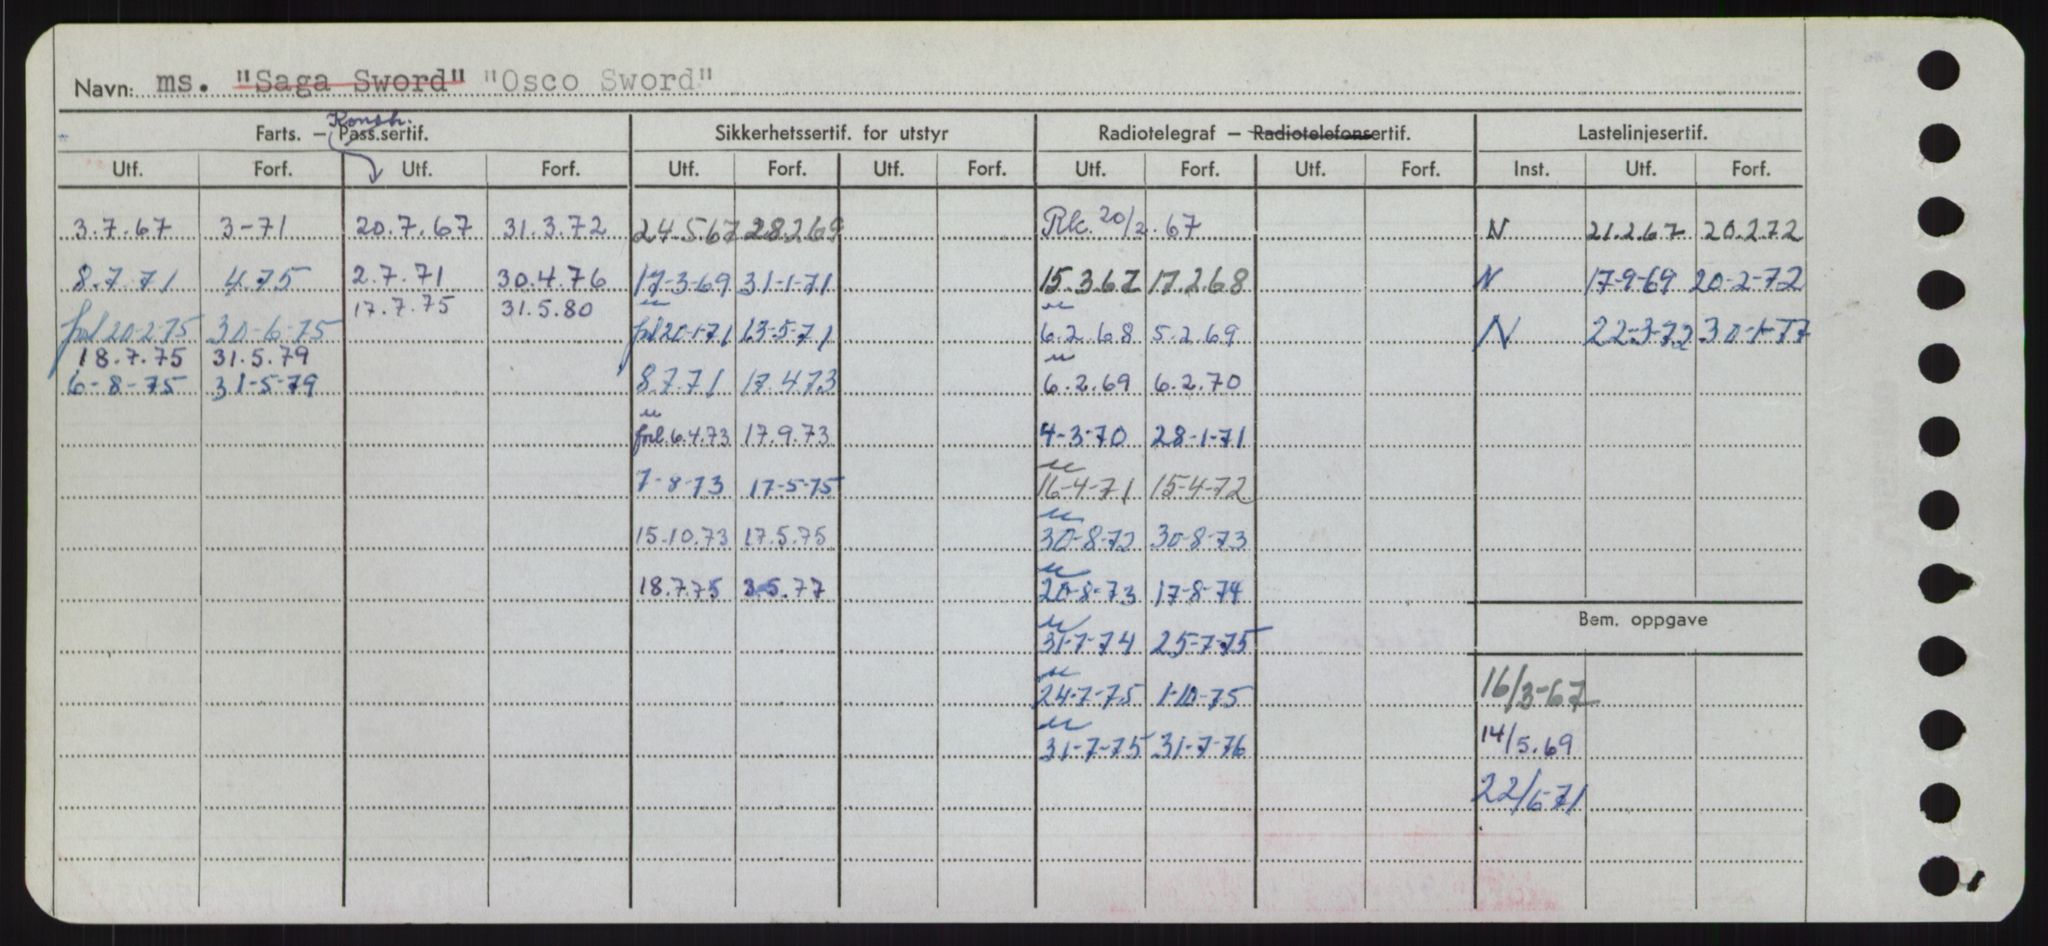 Navn: ms. "Saga Sword" "Osco Sword"
Konstr.
Farts. – Pass.sertif. Sikkerhetssertif. for utstyr Radiotelegraf – Radiotelefonsertif. Lastelinjesertif.
Utf. Forf. Utf. Forf. Utf. Forf. Utf. Forf. Utf. Forf. Utf. Forf. Inst. Utf. Forf.
3.7.67 3-71 20.7.67 31.3.72 24.5.67 28.2.69 Rk. 20/2.67 N 21.2.67 20.2.72
8.7.71 4.75 2.7.71 30.4.76 17-3-69 31-1-71 15.3.67 17.2.68 N 17-9-69 20-2-72
17.7.75 31.5.80
forl 20-2-75 30-6-75 forl 20-1-71 13-5-71 6.2.68 5.2.69 N 22-3-72 30-1-77
18.7.75 31.5.79
6-8-75 31-5-79 8.7.71 17.4.73 6.2.69 6.2.70
forl. 6.4.73 17.9.73 4-3-70 28-1-71
7-8-73 17-5-75 16-4-71 15-4-72
15.10.73 17.5.75 30-8-72 30-8-73
18.7.75 3.5.77 20-8-73 17-8-74
Bem. oppgave
31-7-74 25-7-75
24-7-75 1-10-75 16/3-67
31-7-75 31-7-76 14/5.69
22/6-71